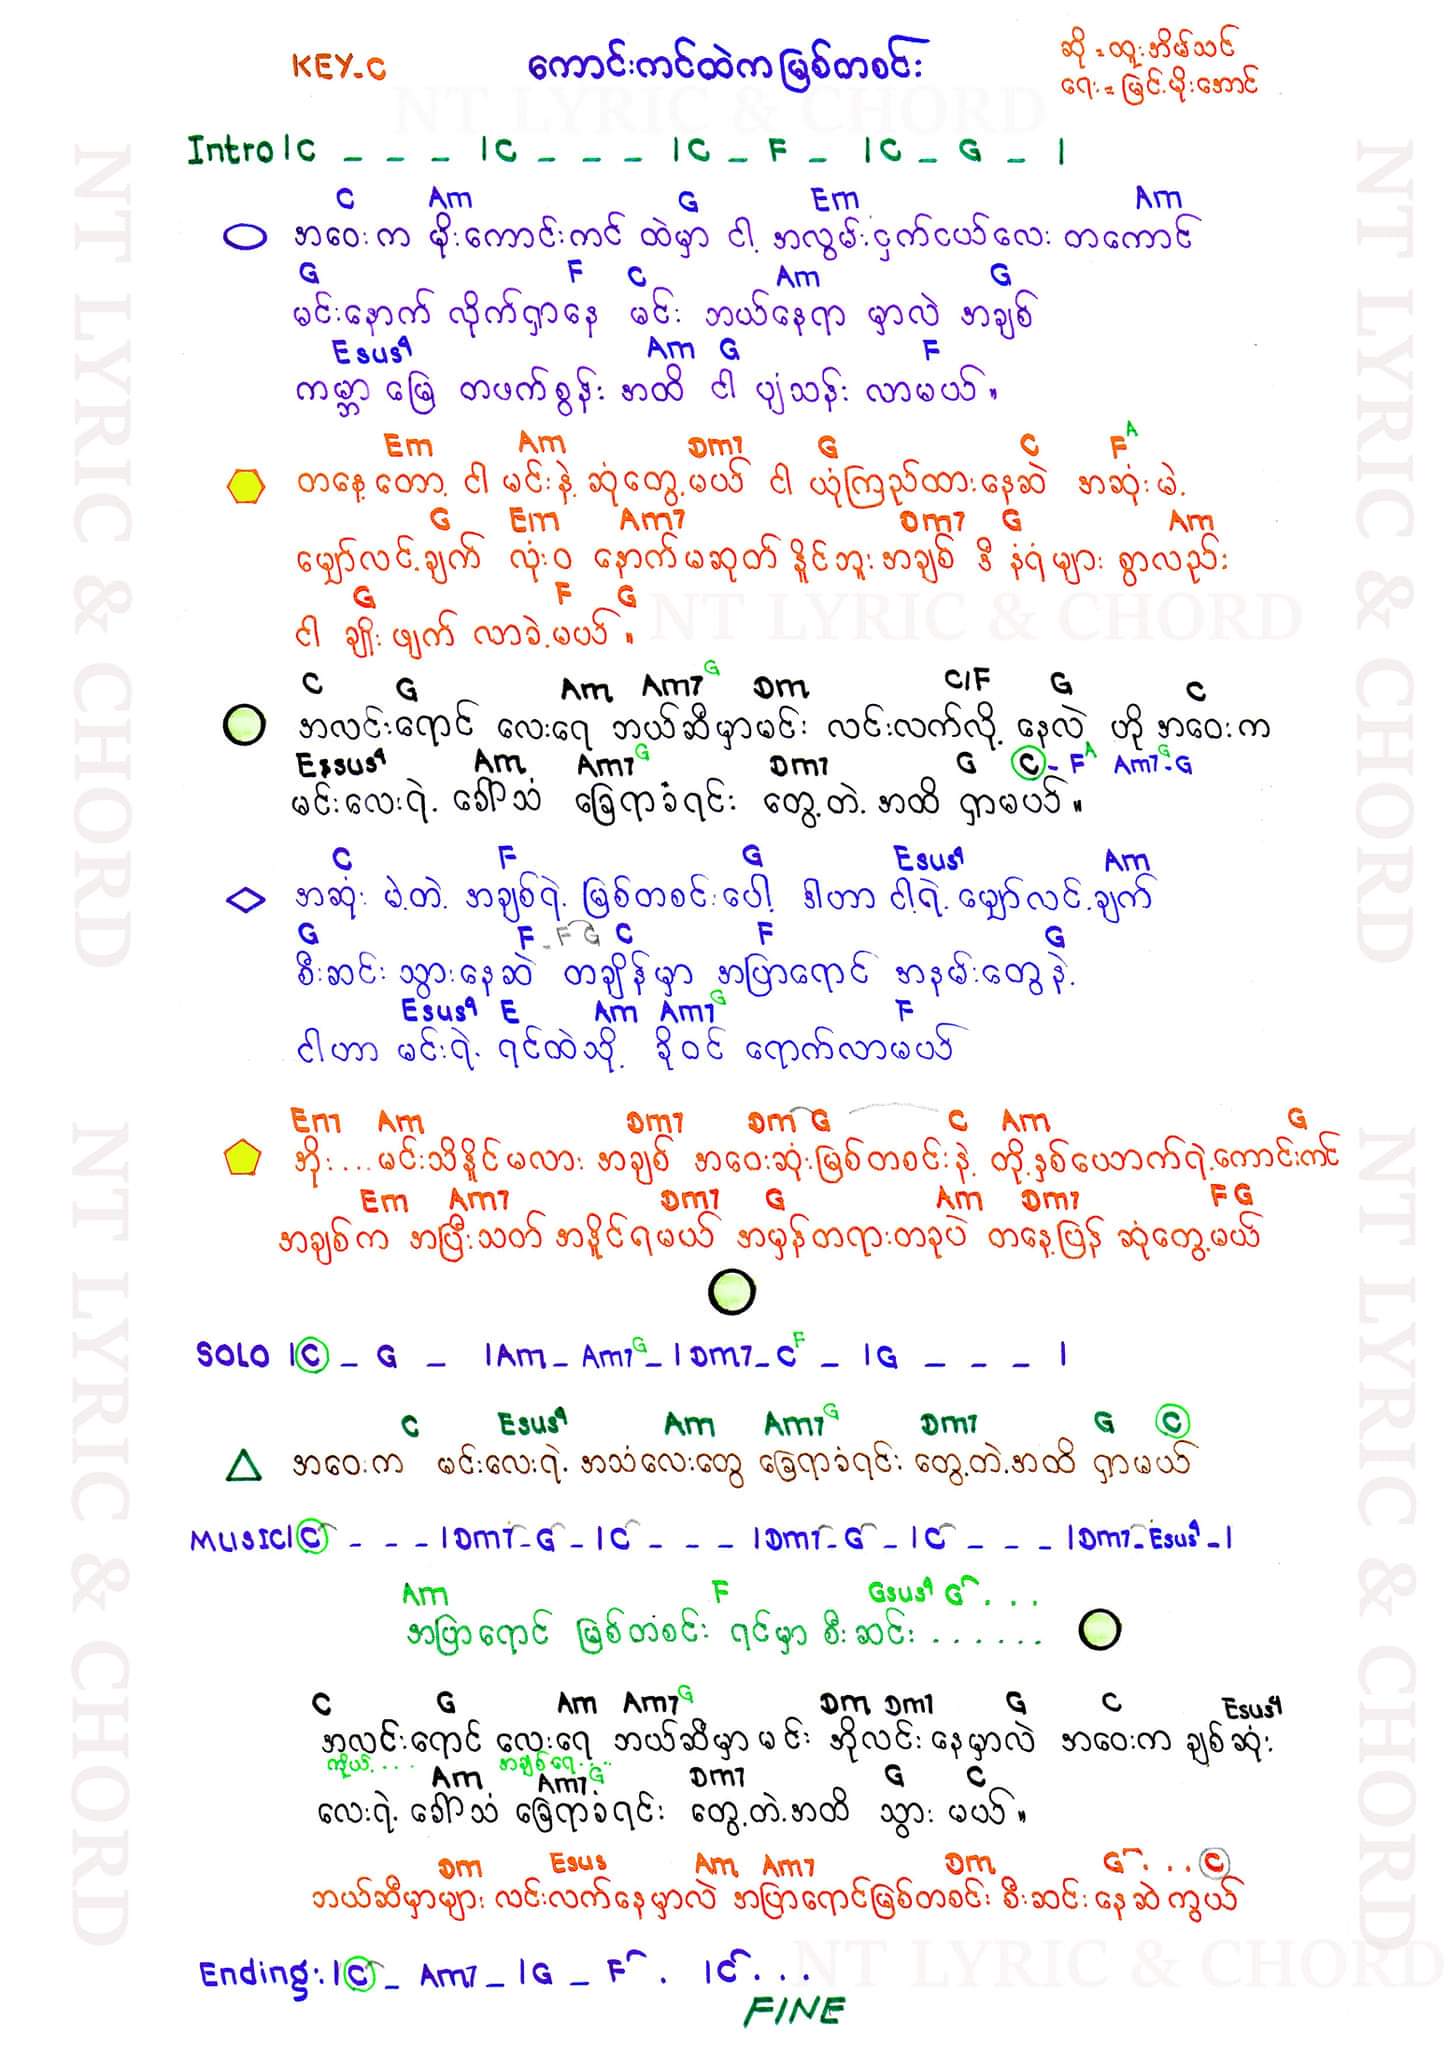 KEY-C ကောင်းကင်ထဲကမြစ်တစင်း ဆို = ထူးအိမ်သင်
ရေး = မြင့်မိုးအောင်
Intro | C _ _ _ | C _ _ _ | C _ F _ | C _ G _ |
C Am G Em Am
အဝေးက မိုးကောင်းကင် ထဲမှာ ငါ့ အလွမ်းငှက်ငယ်လေး တကောင်
G F C Am G
မင်းနောက် လိုက်ရှာနေ မင်း ဘယ်နေရာ မှာလဲ အချစ်
Esus4 Am G F
ကမ္ဘာ မြေ တဖက်စွန်း အထိ ငါ ပျံသန်း လာမယ်။
Em Am Dm7 G C F A
တနေ့တော့ ငါ မင်းနဲ့ ဆုံတွေ့မယ် ငါ ယုံကြည်ထားနေဆဲ အဆုံးမဲ့
G Em Am7 Dm7 G Am
မျှော်လင့်ချက် လုံးဝ နောက်မဆုတ် နိူင်ဘူး အချစ် ဒီ နံရံများ စွာလည်း
G F G
ငါ ချိုးဖျက် လာခဲ့မယ်။
C G Am Am7 G Dm C/F G C
အလင်းရောင် လေးရေ ဘယ်ဆီမှာမင်း လင်းလက်လို့ နေလဲ ဟို အဝေးက
Essus4 Am Am7 G Dm7 G C - F A Am7 G - G
မင်းလေးရဲ့ ခေါ်သံ ခြေရာခံရင်း တွေ့တဲ့ အထိ ရှာမယ်။
C F G Esus4 Am
အဆုံး မဲ့တဲ့ အချစ်ရဲ့ မြစ်တစင်းပေါ့ ဒါဟာ ငါ့ရဲ့ မျှော်လင့်ချက်
G F - F G C F G
စီးဆင်း သွားနေဆဲ တချိန်မှာ အပြာရောင် အနမ်းတွေနဲ့
Esus4 E Am Am7 G F
ငါဟာ မင်းရဲ့ ရင်ထဲသို့ ခိုဝင် ရောက်လာမယ်
Em7 Am Dm7 Dm G C Am G
အိုး... မင်းသိနိူင်မလား အချစ် အဝေးဆုံးမြစ်တစင်းနဲ့ တို့နှစ်ယောက်ရဲ့ကောင်းကင်
Em Am7 Dm7 G Am Dm7 F G
အချစ်က အပြီးသတ် အနိူင်ရမယ် အမှန်တရားတခုပဲ တနေ့ပြန် ဆုံတွေ့မယ်
SOLO | C _ G _ | Am _ Am7 G _ | Dm7 _ C F _ | G _ _ _ |
C Esus4 Am Am7 G Dm7 G C
အဝေးက မင်းလေးရဲ့ အသံလေးတွေ ခြေရာခံရင်း တွေ့တဲ့အထိ ရှာမယ်
MUSIC | C _ _ _ | Dm7 _ G _ | C _ _ _ | Dm7 _ G _ | C _ _ _ | Dm7 _ Esus4 _ |
Am F Gsus4 G . . .
အပြာရောင် မြစ်တစင်း ရင်မှာ စီးဆင်း . . . . . .
C G Am Am7 G Dm Dm7 G C Esus4
အလင်းရောင် လေးရေ ဘယ်ဆီမှာ မင်း အိုလင်း နေမှာလဲ အဝေးက ချစ်ဆုံး
ကိုယ့်.... အချစ်ရေ....
Am Am7 G Dm7 G C
လေးရဲ့ ခေါ်သံ ခြေရာခံရင်း တွေ့တဲ့အထိ သွား မယ်။
Dm Esus Am Am7 Dm G . . . C
ဘယ်ဆီမှာများ လင်းလက်နေမှာလဲ အပြာရောင်မြစ်တစင်း စီးဆင်းနေဆဲကွယ်
Ending: | C _ Am7 _ | G _ F . | C . . .
FINE
NT LYRIC & CHORD
NT LYRIC & CHORD
NT LYRIC & CHORD
NT LYRIC & CHORD
NT LYRIC & CHORD
NT LYRIC & CHORD
NT LYRIC & CHORD